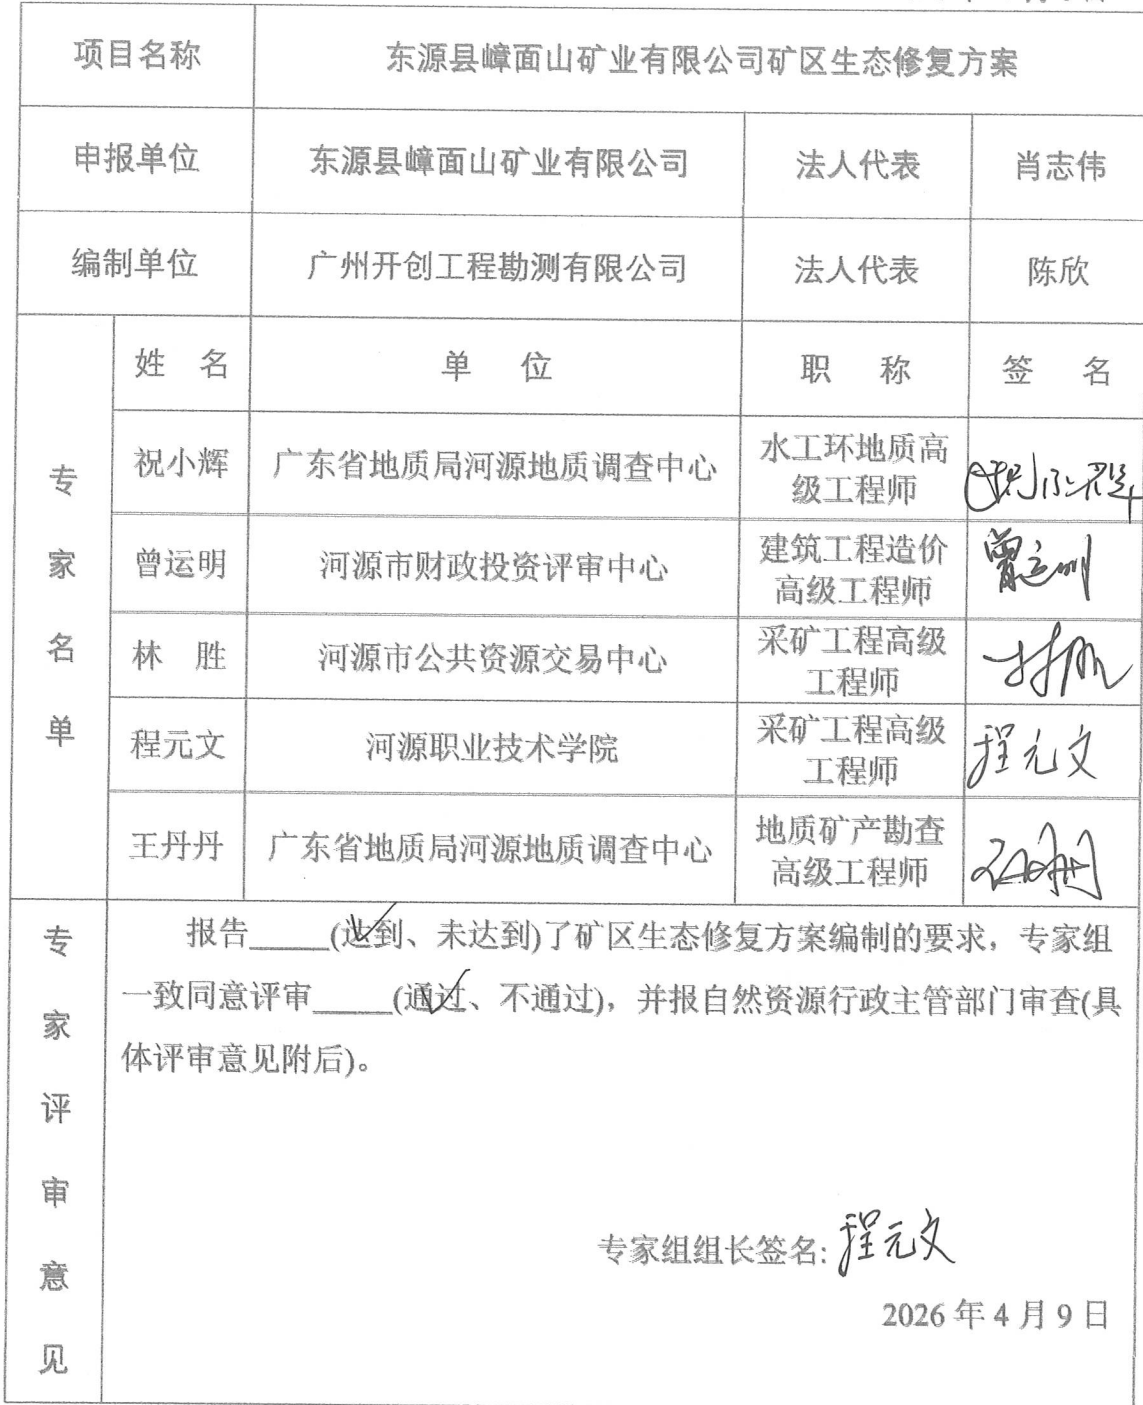 项目名称 东源县嶂面山矿业有限公司矿区生态修复方案
申报单位 东源县嶂面山矿业有限公司 法人代表 肖志伟
编制单位 广州开创工程勘测有限公司 法人代表 陈欣
专家名单
姓 名 单 位 职 称 签 名
祝小辉 广东省地质局河源地质调查中心 水工环地质高
级工程师 祝小辉
曾运明 河源市财政投资评审中心 建筑工程造价
高级工程师 曾运明
林 胜 河源市公共资源交易中心 采矿工程高级
工程师 林胜
程元文 河源职业技术学院 采矿工程高级
工程师 程元文
王丹丹 广东省地质局河源地质调查中心 地质矿产勘查
高级工程师 王丹丹
专家评审意见
报告_____(达到、未达到)了矿区生态修复方案编制的要求，专家组
一致同意评审_____(通过、不通过)，并报自然资源行政主管部门审查(具
体评审意见附后)。
专家组组长签名: 程元文
2026 年 4 月 9 日